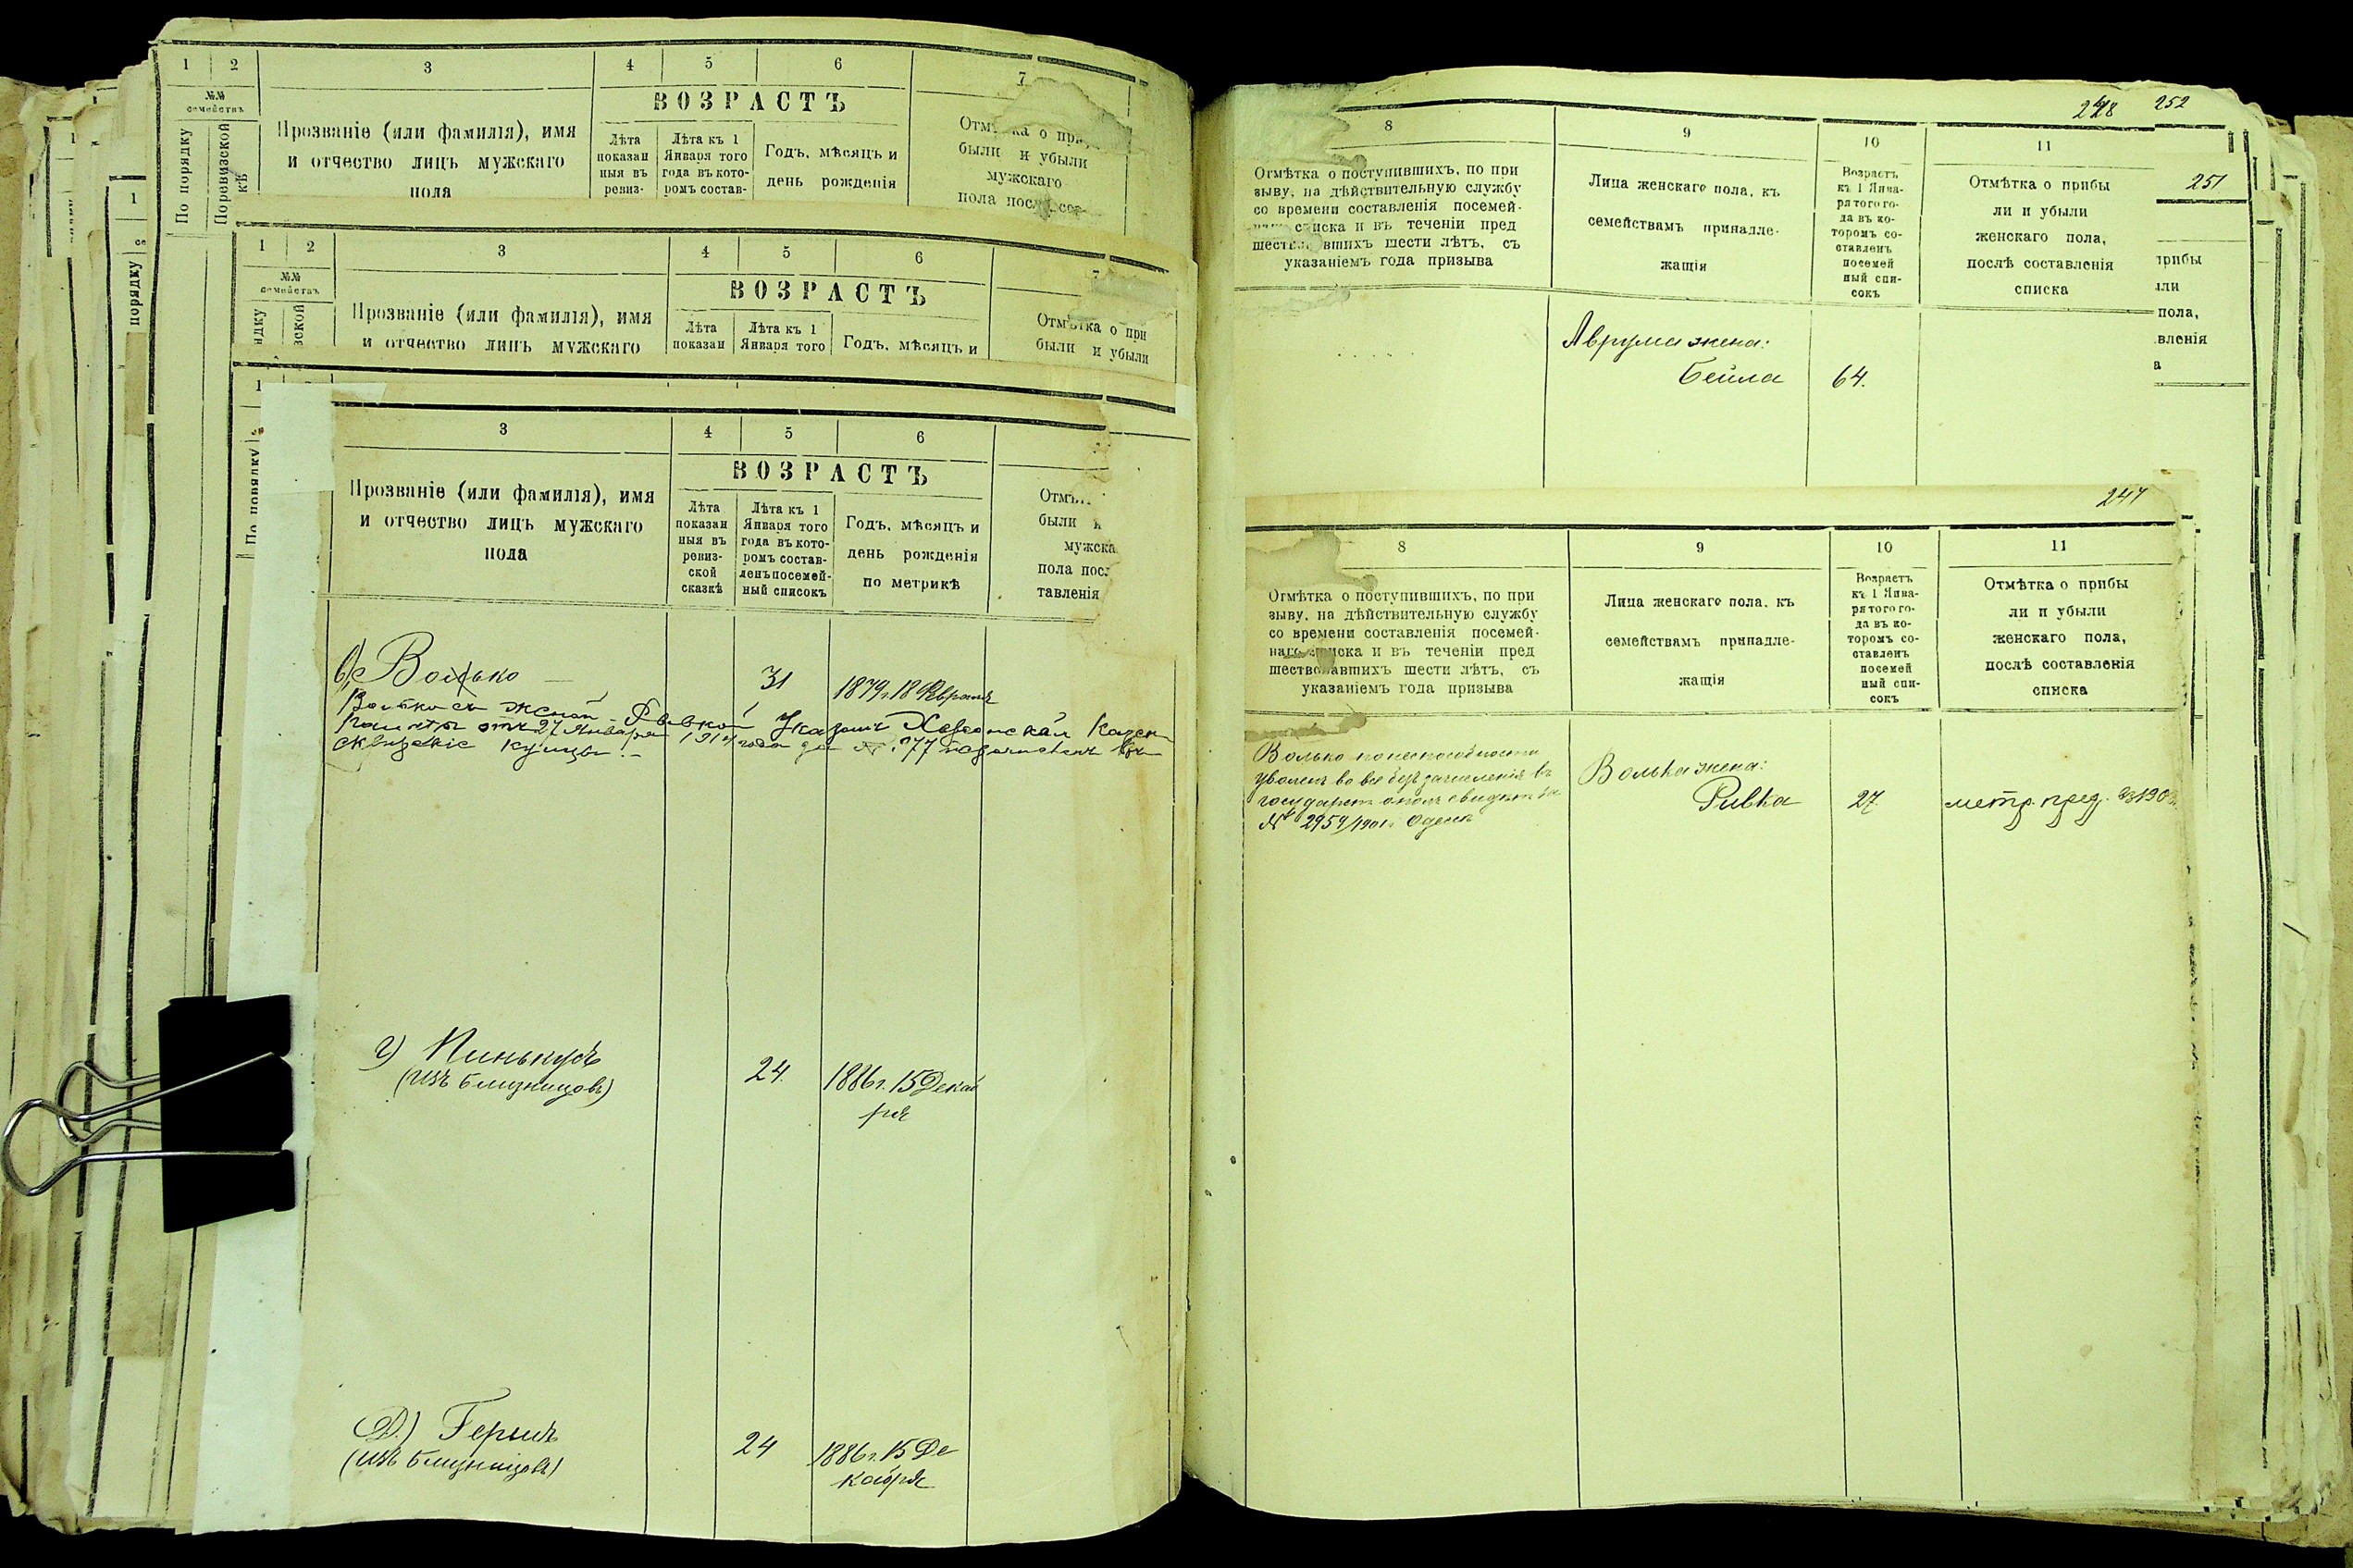 1 2 3 4 5 6 7
№№ семействъ
По порядку
Поревизской
Прозваніе (или фамилія), имя
и отчество лицъ мужскаго
пола
ВОЗРАСТЪ
Лѣта
показан
ныя въ
ревиз-
Лѣта къ 1
Января того
года въ кото-
ромъ состав-
Годъ, мѣсяцъ и
день рожденія
были и убыли
мужскаго
1 2 3 4 5 6 7
№№
семействъ
Прозваніе (или фамилія), имя
и отчество лицъ мужскаго
ВОЗРАСТЪ
Лѣта
показан
Лѣта къ 1
Января того
Годъ, мѣсяцъ и
Отмѣтка о при
были и убыли
1
3 4 5 6
Прозваніе (или фамилія), имя
и отчество лицъ мужскаго
пола
ВОЗРАСТЪ
Лѣта
показан
ныя въ
ревиз-
ской
сказкѣ
Лѣта къ 1
Января того
года въ кото-
ромъ состав-
ленъ посемей-
ный списокъ
Годъ, мѣсяцъ и
день рожденія
по метрикѣ
были
мужска
пола
тавленія
Волько 31 1879 г. 18 Февраля
Волько съ женой Ривкой Указомъ Херсонской Казен.
Палаты отъ 27 Января 191 года за №
Сквирскіе купцы.
г) Пинькусъ 24. 1886 г. 15 Декаб
(изъ близнецовъ) ря
Д.) Гершъ 24 1886 г. 15 Де
(изъ близнецовъ) кабря
252
251
8 9 10 11
Отмѣтка о поступившихъ, по при
зыву, на дѣйствительную службу
со времени составленія посемей-
списка и въ теченіи пред
вшихъ шести лѣтъ, съ
указаніемъ года призыва
Лица женскаго пола, къ
семействамъ принадле-
жащія
Возрастъ
къ 1 Янва-
ря того го-
да въ ко-
торомъ со-
ставленъ
посемей
ный спи-
сокъ
Отмѣтка о прибы
ли и убыли
женскаго пола,
послѣ составленія
списка
прибы
ли
пола,
вленія
а
Аврума жена:
Бейла 64.
247
8 9 10 11
Отмѣтка о поступившихъ, по при
зыву, на дѣйствительную службу
со времени составленія посемей-
наго списка и въ теченіи пред
шествовавшихъ шести лѣтъ, съ
указаніемъ года призыва
Лица женскаго пола, къ
семействамъ принадле-
жащія
Возрастъ
къ 1 Янва-
ря того го-
да въ ко-
торомъ со-
ставленъ
посемей
ный спи-
сокъ
Отмѣтка о прибы
ли и убыли
женскаго пола,
послѣ составленія
списка
Волько по неспособности
уволенъ во все безъ зачисленія въ
государст. ополч. свидѣт.
№ 2959/1901 г. Одесск
Волька жена:
Ривка 27. метр. пред.